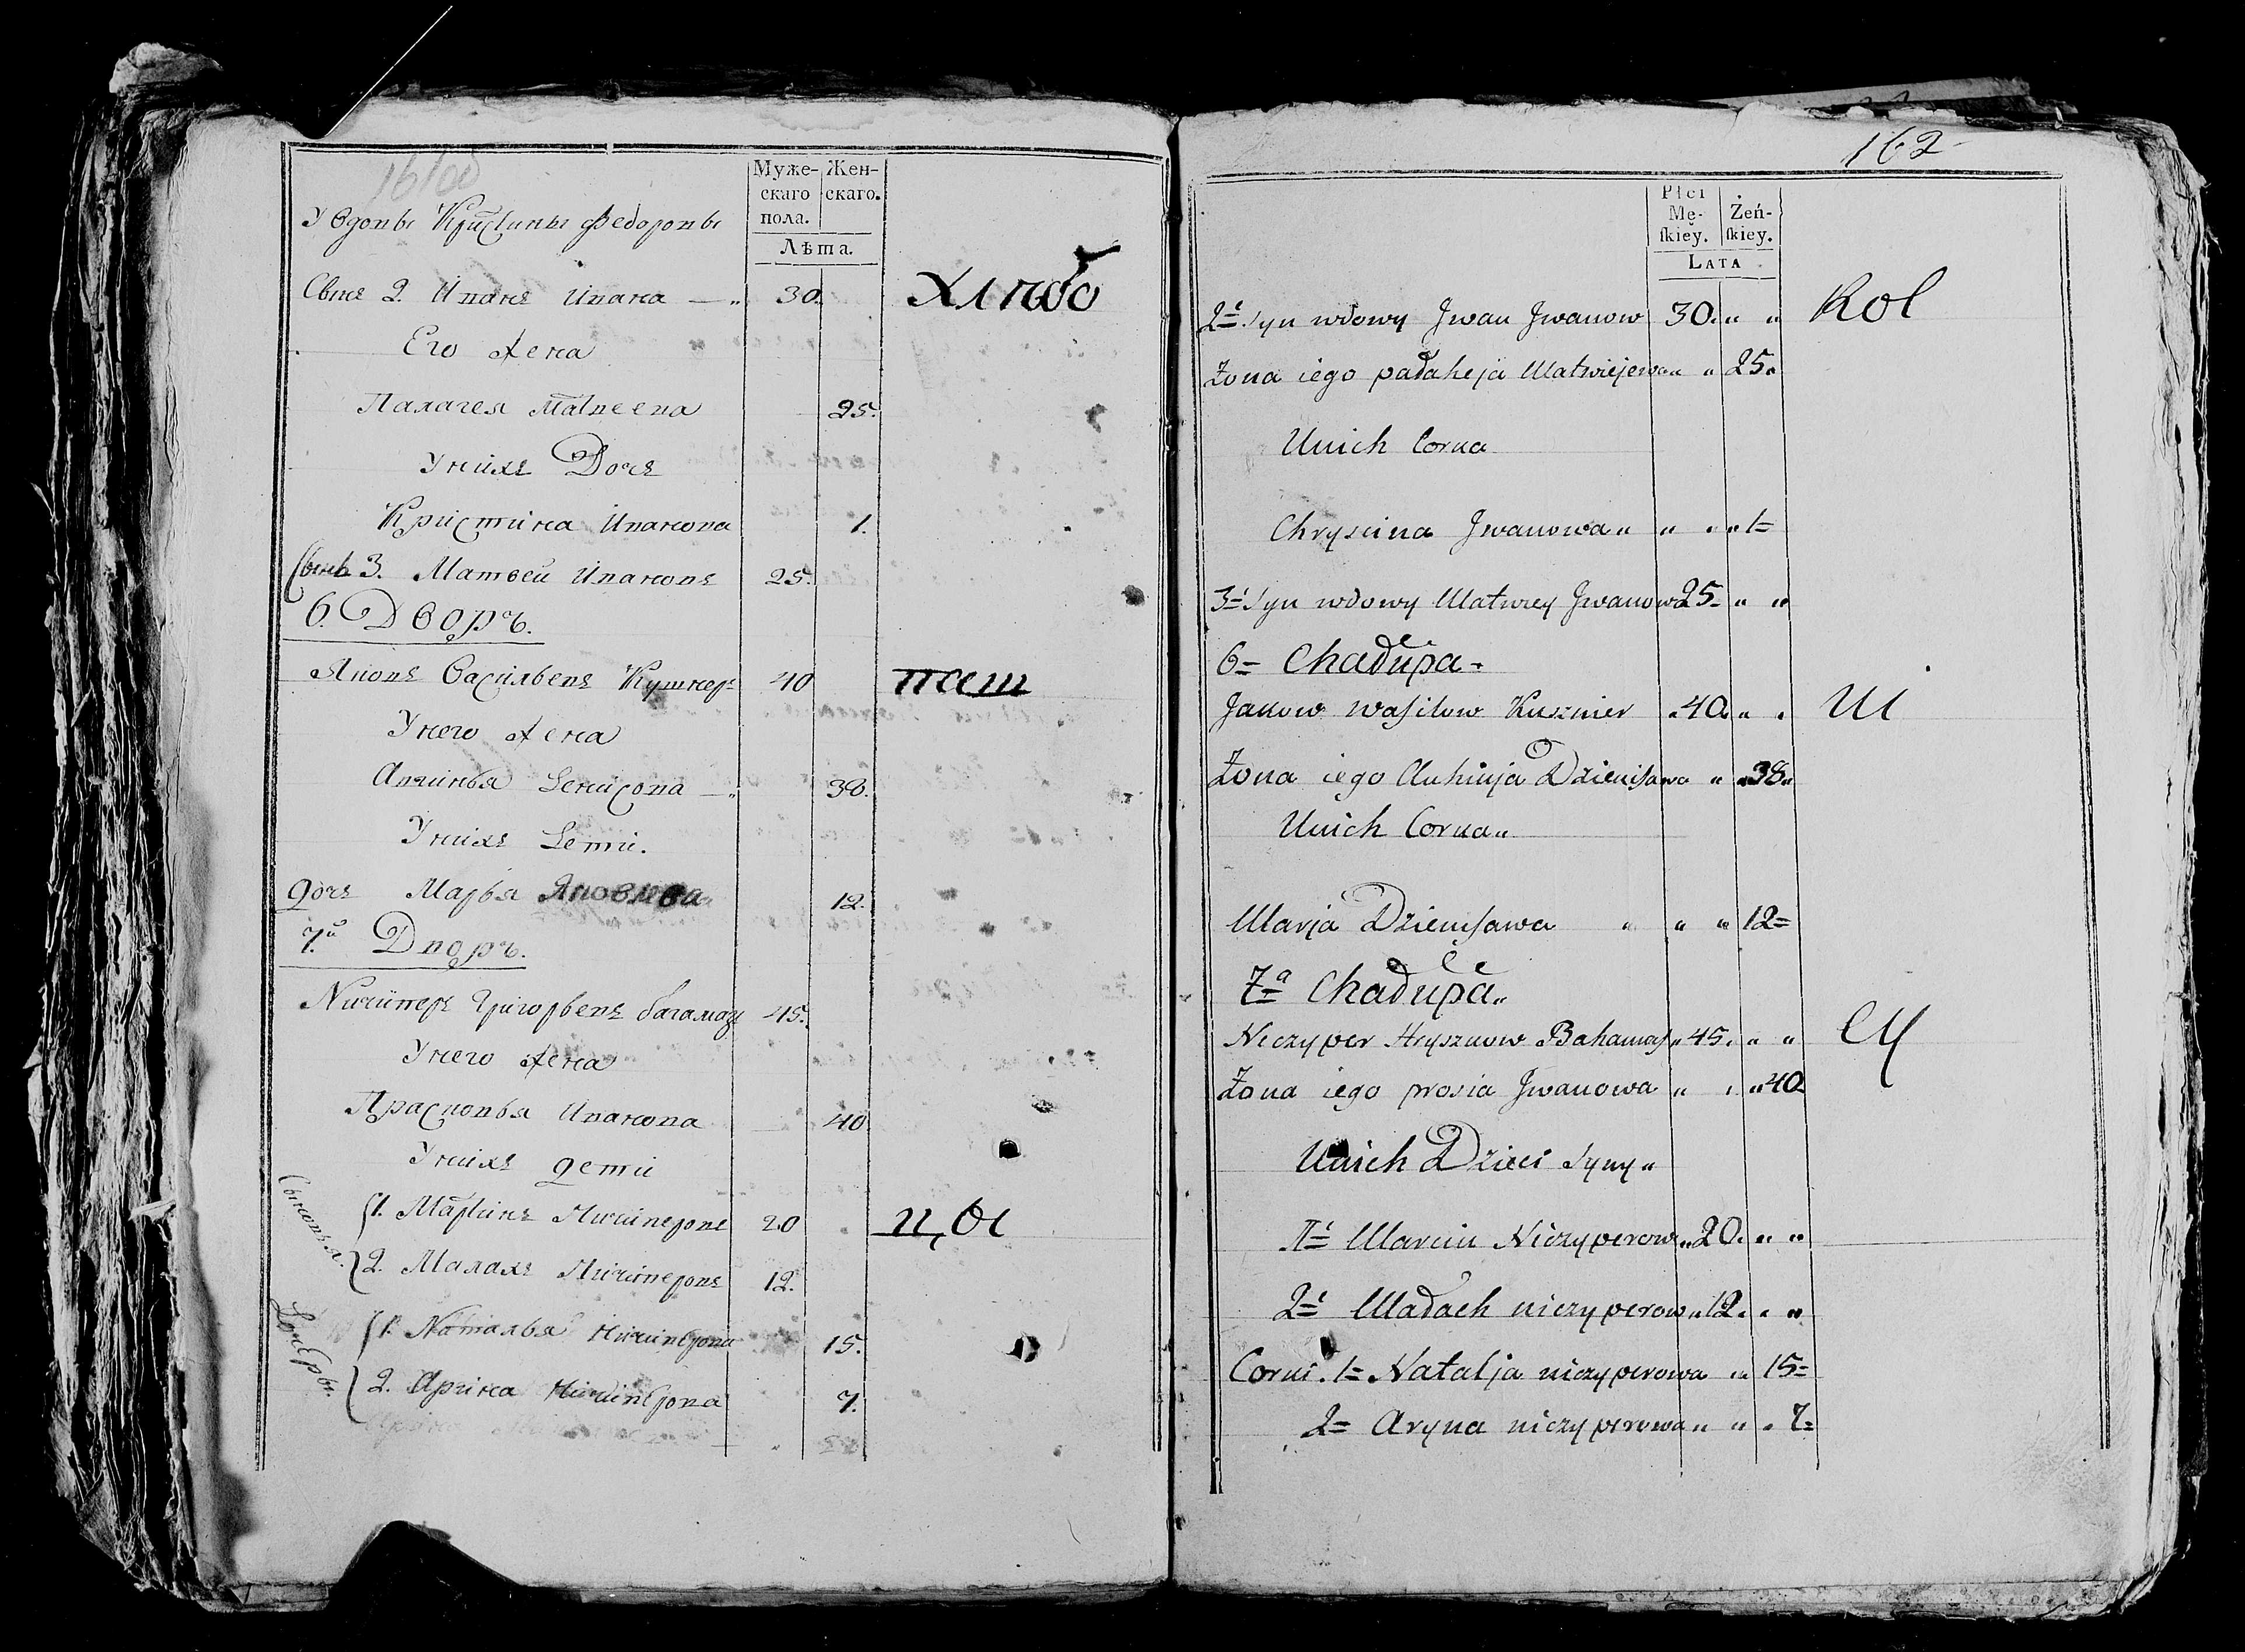 16100
Муже-
скаго
пола.
Жен-
скаго.
Лѣта.
У Вдовы Кристины Федоровы
Сынъ 2. Иванъ Ивана 30.
Его жена
Палагея Матвеева 25.
У нихъ Дочь
Кристина Иванова 1.
Сынъ 3. Матвей Ивановъ 25.
6. Дворъ.
Яковъ Васильевъ Кушнеръ 40
У него жена
Денисова 38.
У нихъ Дети.
дочь Марья Яковлева 12.
7.й Дворъ.
Ничиперъ Григорьевъ Багамазъ 45.
У него жена
Прасковья Иванова 40
У нихъ дети
Сыновья. 1. Мартинъ Ничиперовъ 20
2. Малахъ Ничиперовъ 12.
Дочеры. 1. Наталья Ничиперова 15.
2. Арина Ничиперова 7.
Хлѣбо
паш
ц,ы
162
Płci
Mę-
ſkiey.
Żeń-
ſkiey.
LATA
2= Syn wdowy Jwan Jwanow 30. " "
Żona iego pałaheja Matwiejewa " " 25"
Unich Corka
Chryscina Jwanowa " " " " 1=
3= Syn wdowy Matwiey Jwanow 25= " "
6= Chałupa=
Jakow waſilow Kuszner " 40 " "
Żona iego Auhinja Dzieniſawa " " 38"
Unich Corka "
Marja Dzieniſawa " " " 12=
7=a Chałupa "
Niczyper Hrysznow Bahamaſ " 45 " "
Żona iego prosia Jwanowa " " " 40
Unich Dzieci Syny "
1= Marcin Niczyperow " 20 " "
2= Małach niczyperow " 12 " "
Corki. 1= Natalja niczyperowa " 15=
2= Aryna niczyperowa " " " 7=
Rol